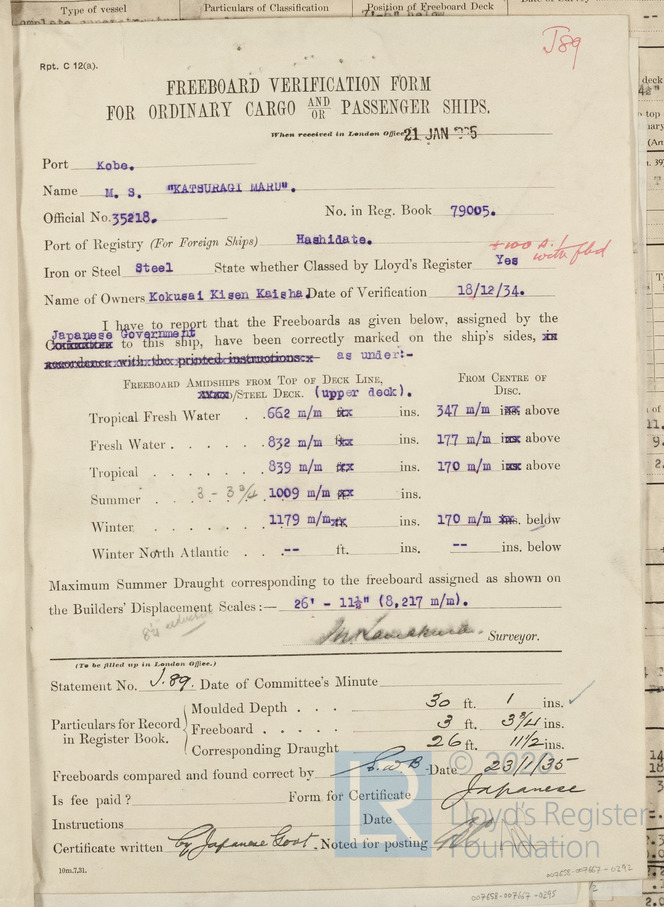 Type of vessel
Particulars of Classification
Position of Freeboard Deck
J89
Rpt. C 12(a).
FREEBOARD VERIFICATION FORM
FOR ORDINARY CARGO AND/OR PASSENGER SHIPS.
When received in London Office 21 JAN
Port Kobe.
Name M. S. "KATSURAGI MARU".
Official No. 35218. No. in Reg. Book 79005.
Port of Registry (For Foreign Ships) Hashidate.
+100 A.1
with fbd
Iron or Steel Steel State whether Classed by Lloyd's Register Yes
Name of Owners Kokusai Kisen Kaisha. Date of Verification 18/12/34.
I have to report that the Freeboards as given below, assigned by the
Japanese Government
to this ship, have been correctly marked on the ship's sides, in
accordance with the printed instructions:- as under:-
FREEBOARD AMIDSHIPS FROM TOP OF DECK LINE, FROM CENTRE OF
/STEEL DECK. (upper deck). DISC.
Tropical Fresh Water . . 662 m/m ft. ins. 347 m/m ins. above
Fresh Water . . . . . 832 m/m ft. ins. 177 m/m ins. above
Tropical . . . . . . 839 m/m ft. ins. 170 m/m ins. above
Summer 3 - 3 3/4 1009 m/m ft. ins.
Winter . . . . . . . 1179 m/m ins. 170 m/m ins. below
Winter North Atlantic . . . -- ft. ins. -- ins. below
Maximum Summer Draught corresponding to the freeboard assigned as shown on
the Builders' Displacement Scales :— 26' - 11½" (8,217 m/m).
Surveyor.
(To be filled up in London Office.)
Statement No. J.89. Date of Committee's Minute
Particulars for Record in Register Book.
Moulded Depth . . . 30 ft. 1 ins. ✓
Freeboard . . . . . 3 ft. 3 3/4 ins.
Corresponding Draught 26 ft. 11 1/2 ins.
Freeboards compared and found correct by S.W.B. Date 23/1/35
Is fee paid? Form for Certificate Japanese
Instructions Date
Certificate written by Japanese Govt. Noted for posting
10m.7,31.
LR
© 2020
Lloyd's Register
Foundation
007658-007667-0292
007658-007667-0295